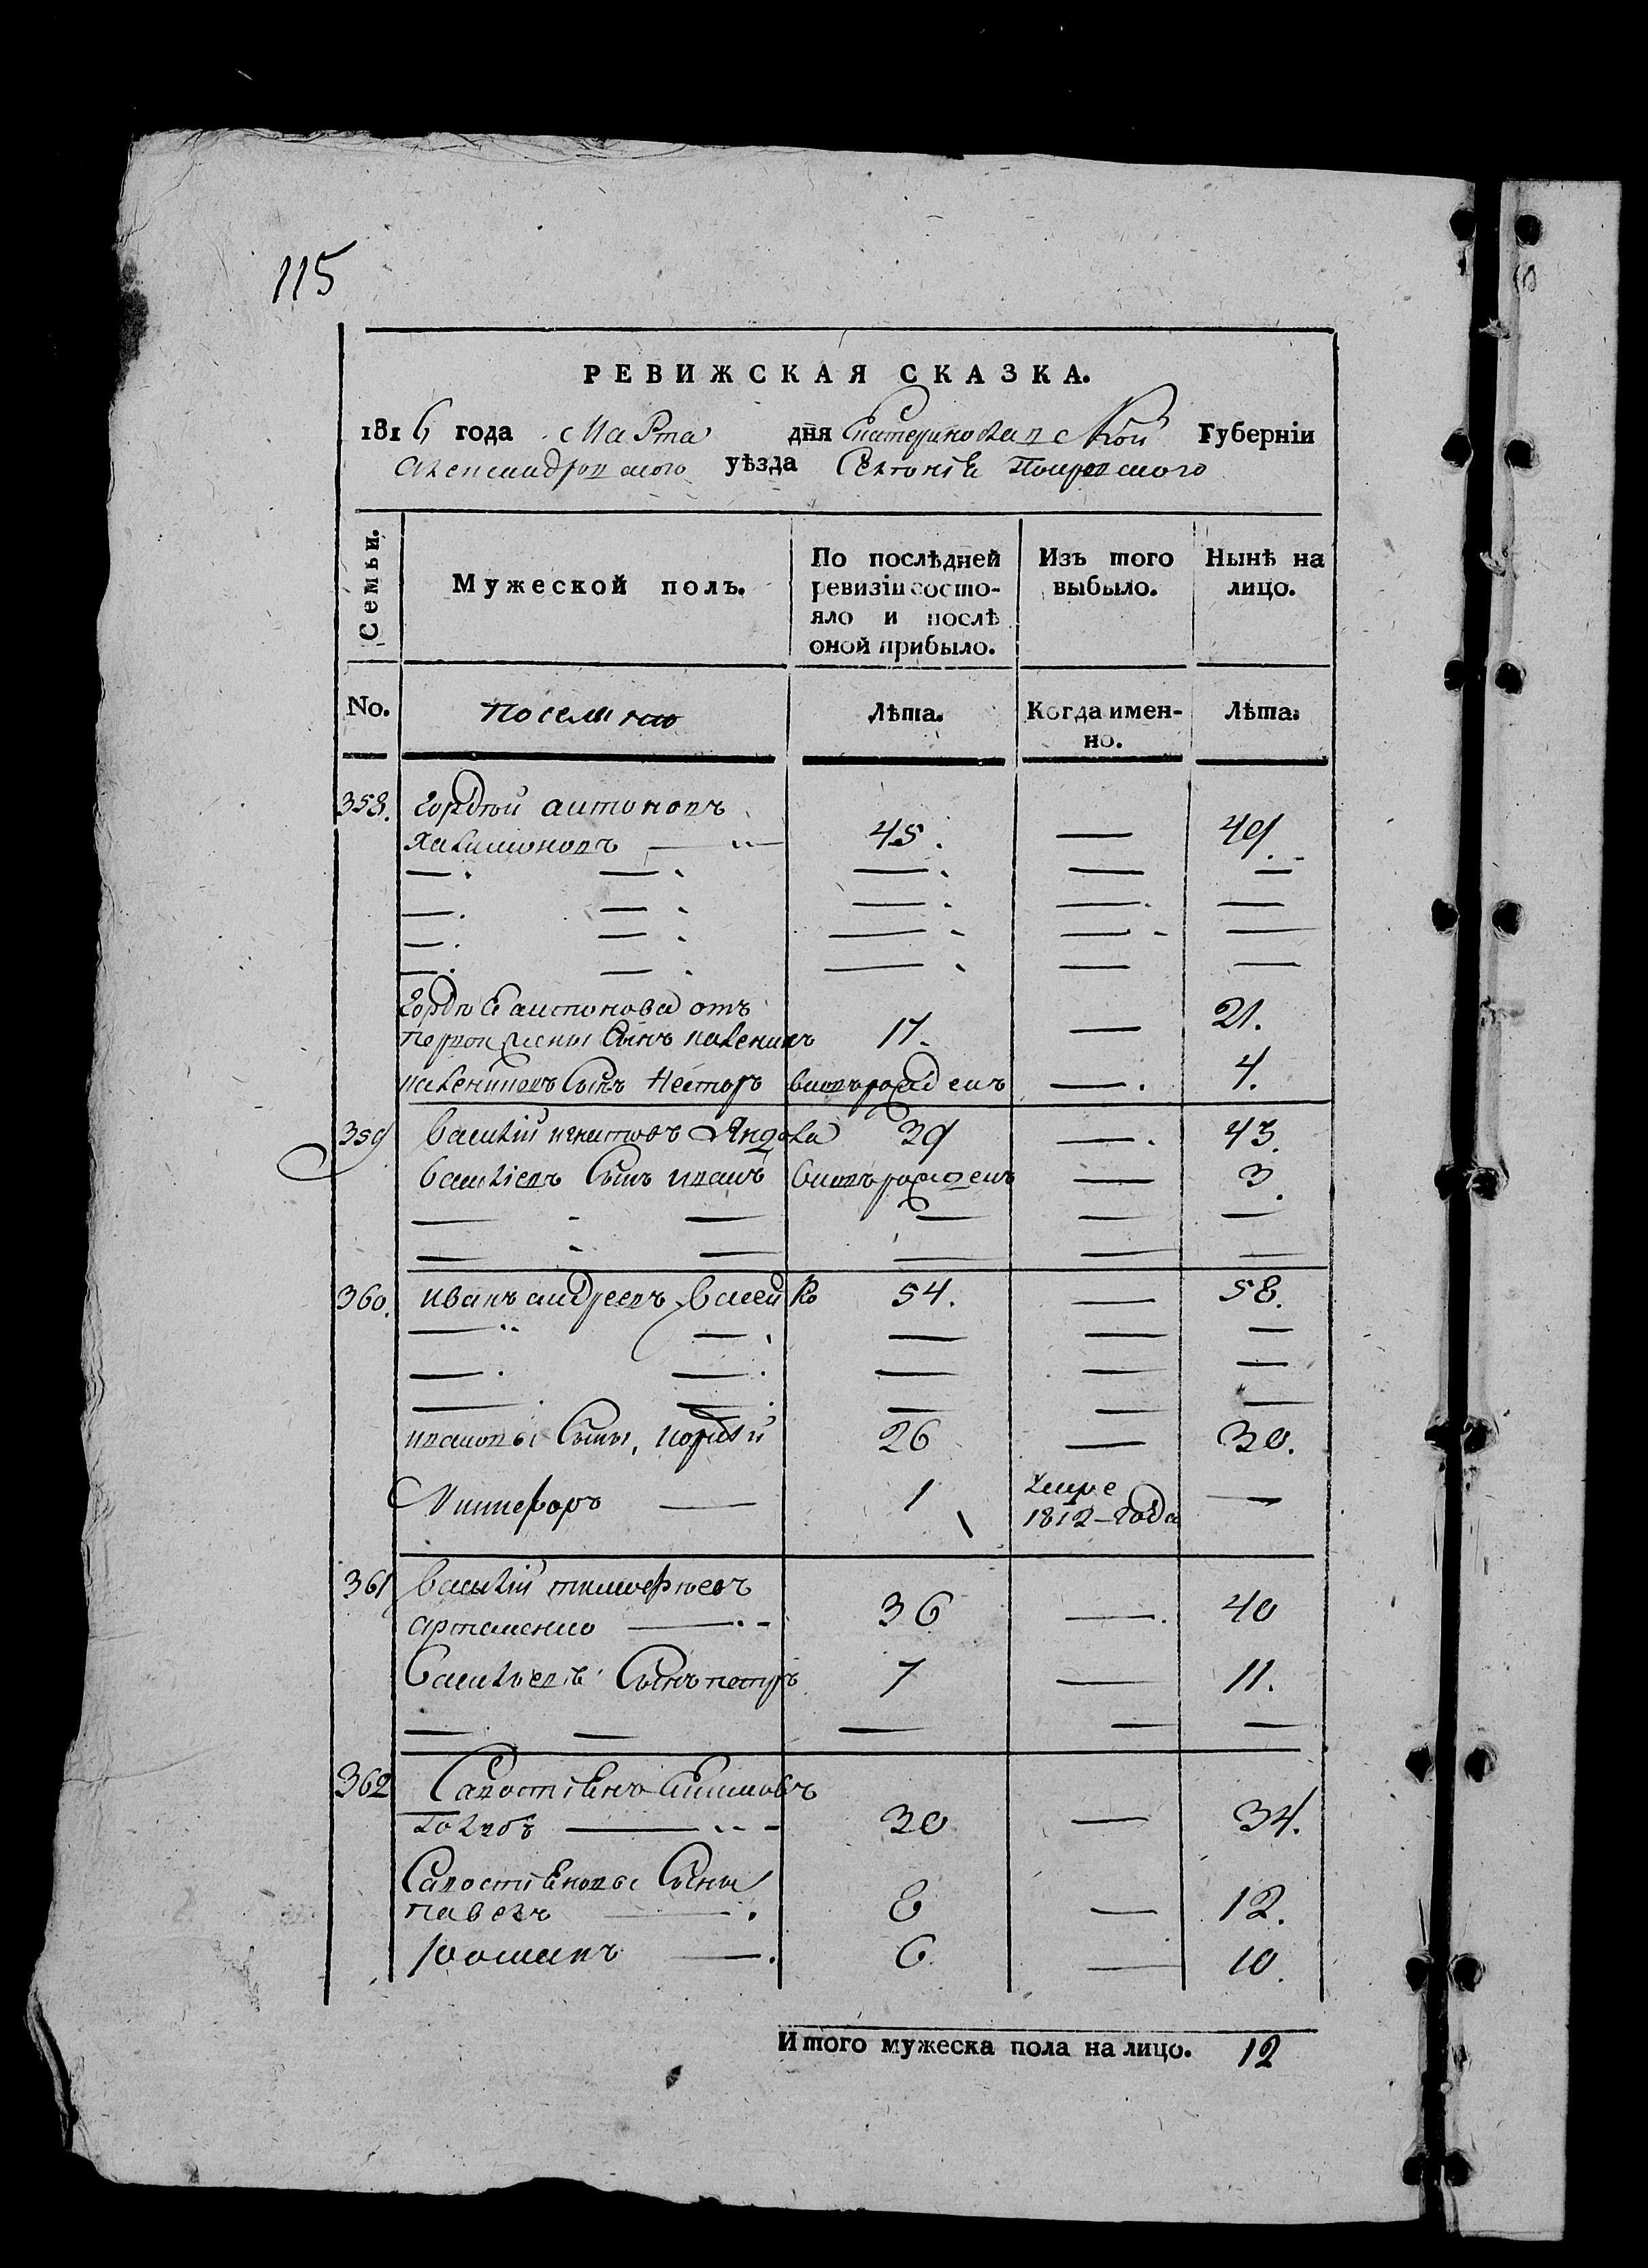 115
РЕВИЖСКАЯ СКАЗКА.
1816 года Марта дня Екатеринославской Губернїи
Александровского уѣзда Селенїя Покровского
Семьи. Мужеской полъ. По послѣдней ревизїи состояло и послѣ оной прибыло. Изъ того выбыло. Нынѣ на лицо.
No. Поселяно Лѣта. Когда именно. Лѣта.
358. Гордѣй антоновъ
Халимоновъ — 45. — 49.
— — — — —
— — — — —
— — — — —
— — — — —
Гордѣя антонова отъ
первой жены Сынъ 17. — 21.
Сынъ Несторъ вновъ рожденъ — 4.
359 Василїй игнатовъ Яндола 39 — 43.
Василїевъ Сынъ иванъ вновъ рожденъ — 3.
— — — — —
— — — — —
360. иванъ андреевъ 54. — 58.
— — — — —
— — — — —
— — — — —
ивановы Сыны, 26 — 30.
Никифоръ — 1 умре 1812-года —
361 Василїй тимофѣевъ
артеменко — 36 — 40
Васильевъ Сынъ петръ 7 — 11.
— — — — —
362 Савостїянъ
— 30 — 34.
Савостїяновы Сыны
павелъ — 8 — 12.
романъ — 6. — 10.
Итого мужеска пола на лицо. 12